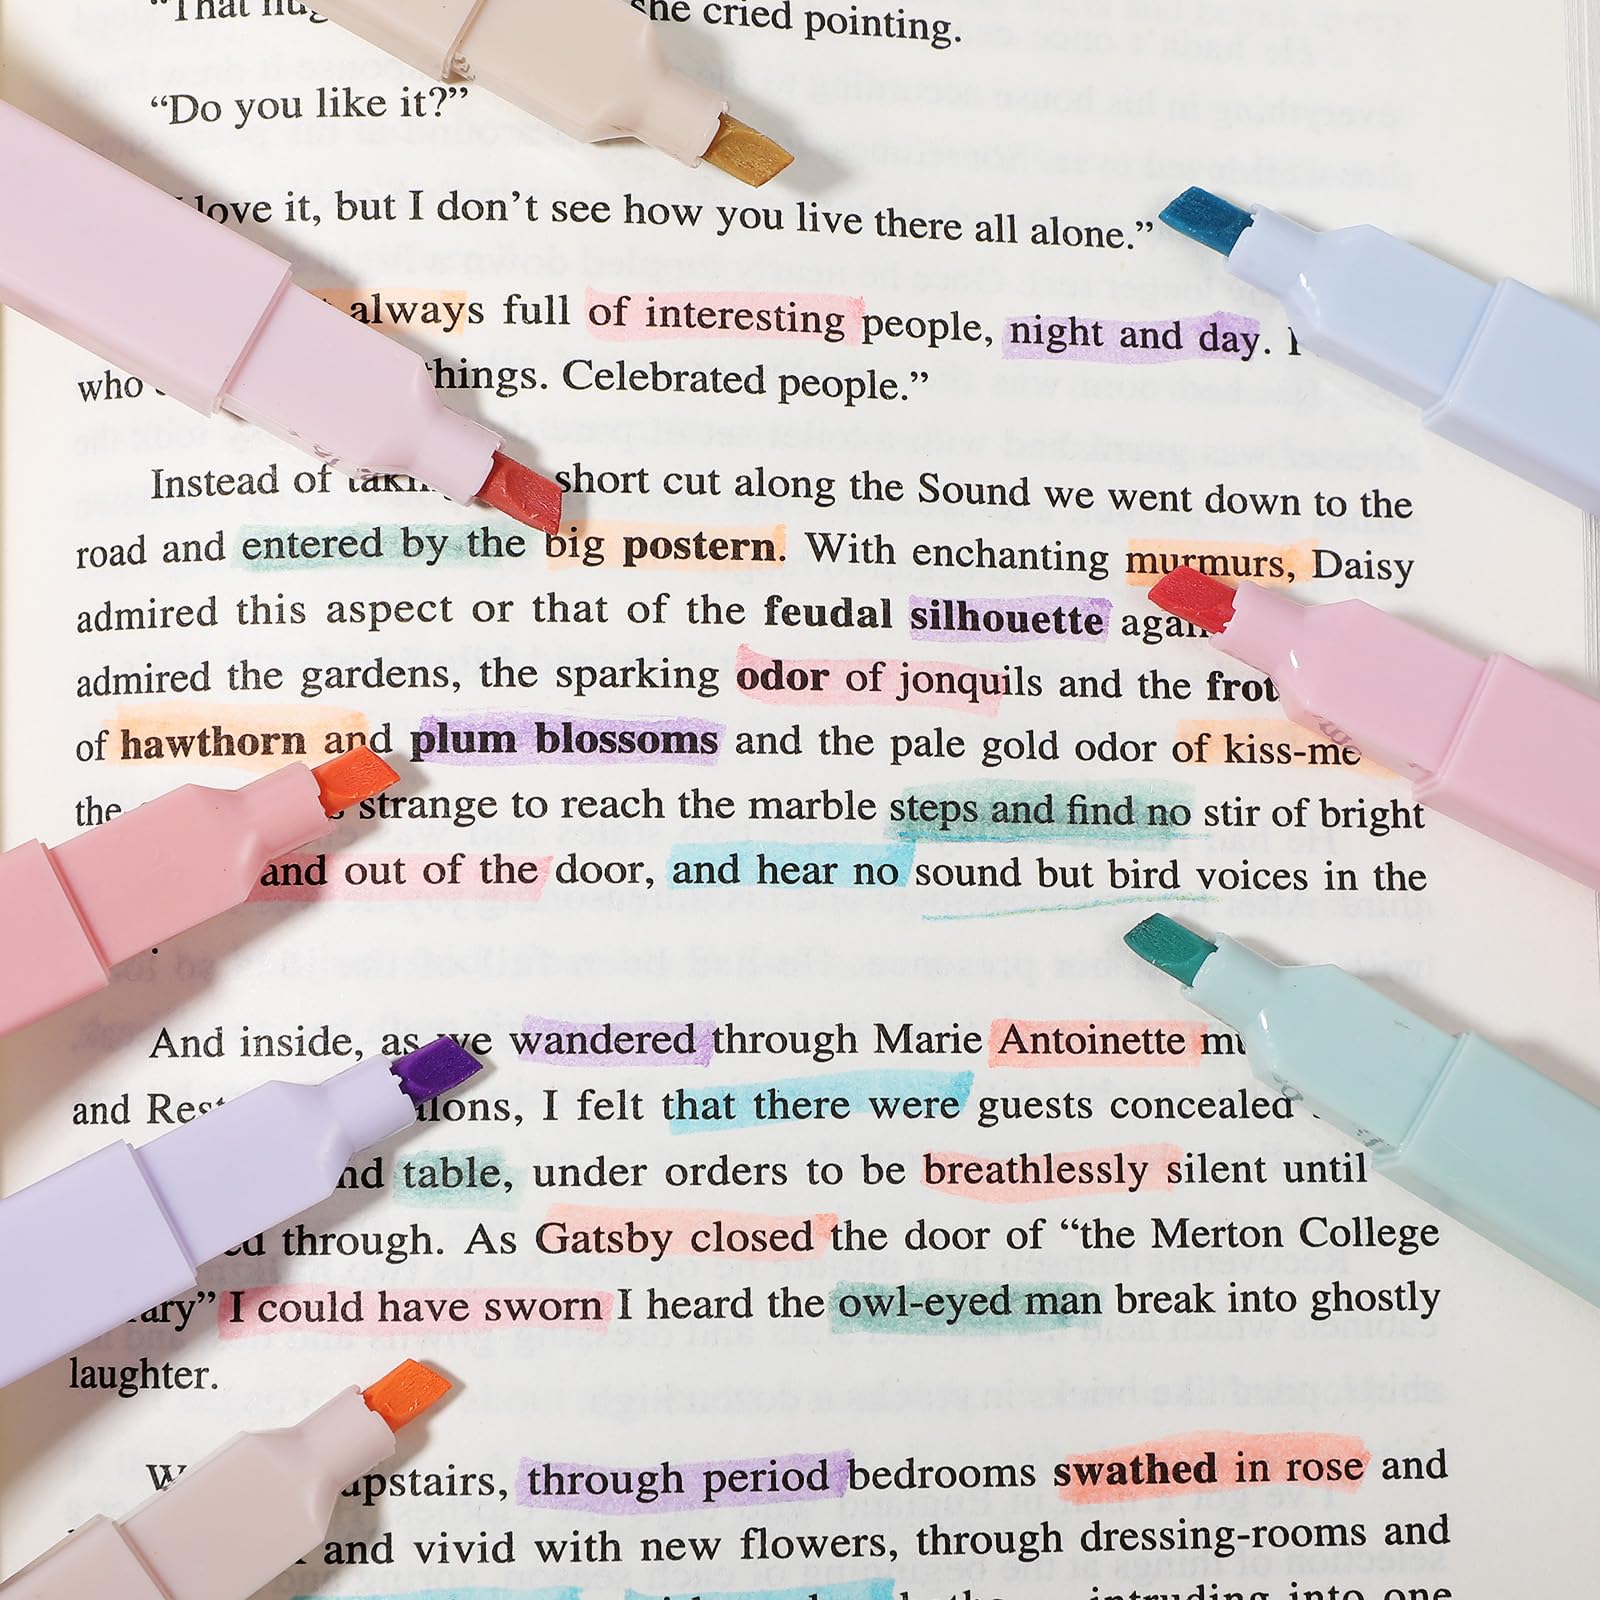 "That he cried pointing.
"Do you like it?"
love it, but I don't see how you live there all alone."
always full of interesting people, night and day.
who things. Celebrated people."
Instead of short cut along the Sound we went down to the
road and entered by the big postern. With enchanting murmurs, Daisy
admired this aspect or that of the feudal silhouette
admired the gardens, the sparking odor of jonquils and the
of hawthorn and plum blossoms and the pale gold odor of kiss-me
the strange to reach the marble steps and find no stir of bright
and out of the door, and hear no sound but bird voices in the
And inside, as we wandered through Marie Antoinette
and I felt that there were guests concealed
table, under orders to be breathlessly silent until
through. As Gatsby closed the door of "the Merton College
I could have sworn I heard the owl-eyed man break into ghostly
laughter.
upstairs, through period bedrooms swathed in rose and
and vivid with new flowers, through dressing-rooms and
intruding into one